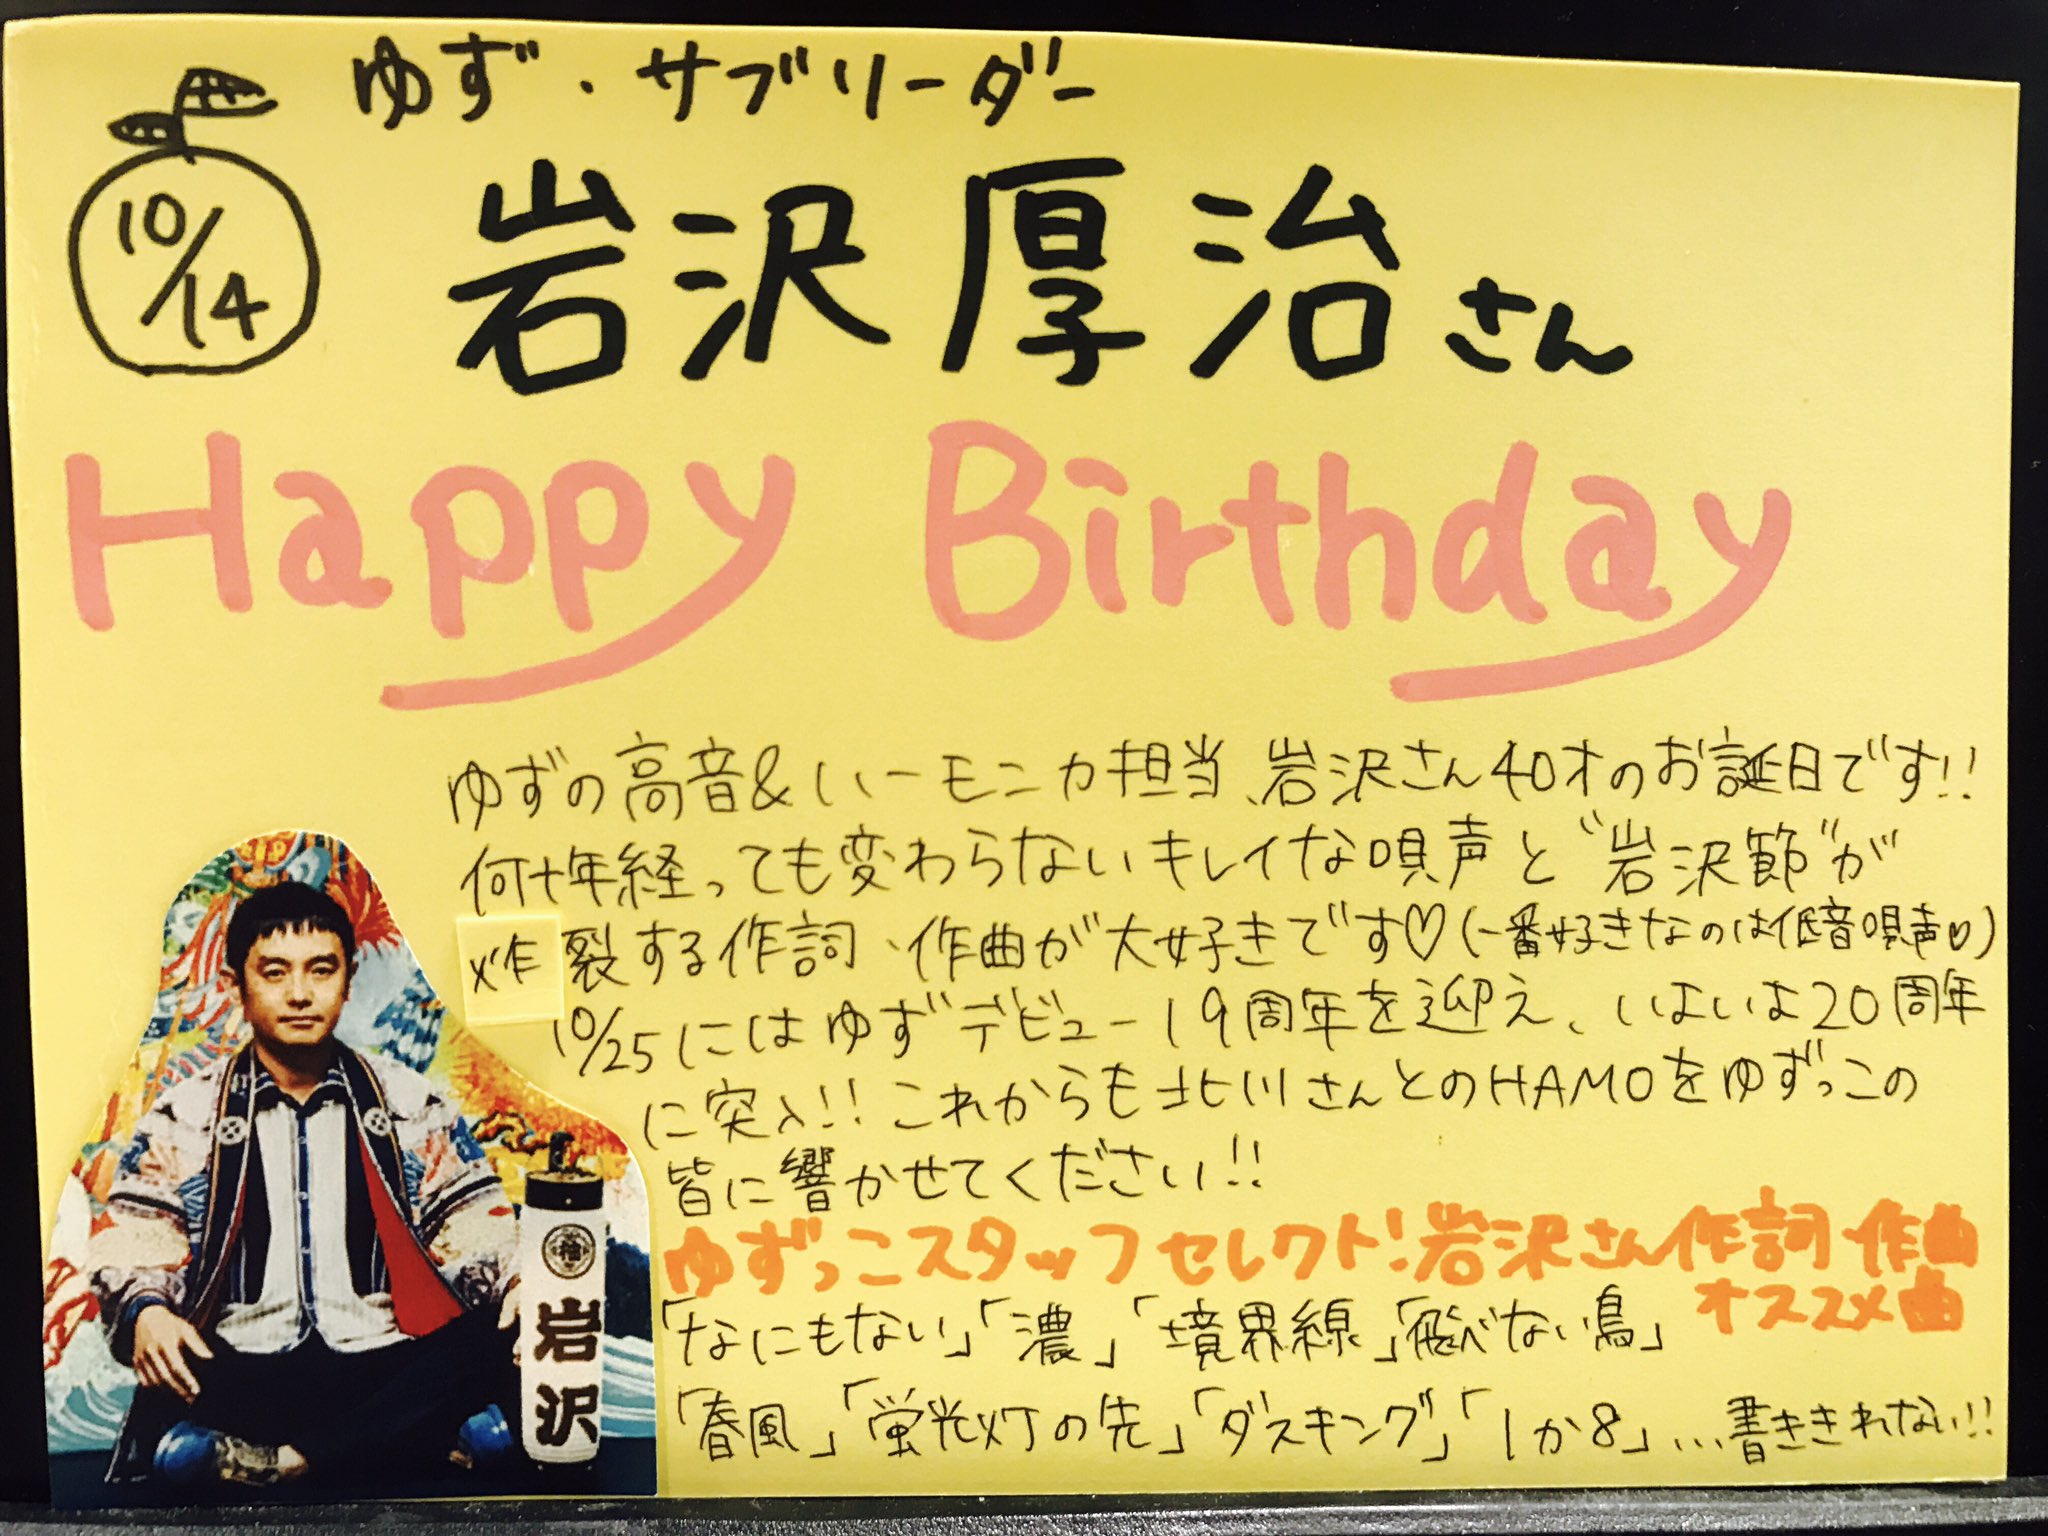 10/14
ゆず・サブリーダー
岩沢厚治さん
Happy Birthday
ゆずの高音&ハーモニカ担当、岩沢さん40才のお誕生日です!!
何十年経っても変わらないキレイな唄声と〝岩沢節〟が
炸裂する作詞、作曲が大好きです♡(一番好きなのは低音唄声♡)
10/25にはゆずデビュー19周年を迎え、いよいよ20周年
に突入!!これからも北川さんとのHAMOをゆずっこの
皆に響かせてください!!
ゆずっこスタッフセレクト!岩沢さん作詞作曲
オススメ曲
「なにもない」「濃」「境界線」「飛べない鳥」
「春風」「蛍光灯の先」「ダスキング」「1か8」...書ききれない!!
岩沢